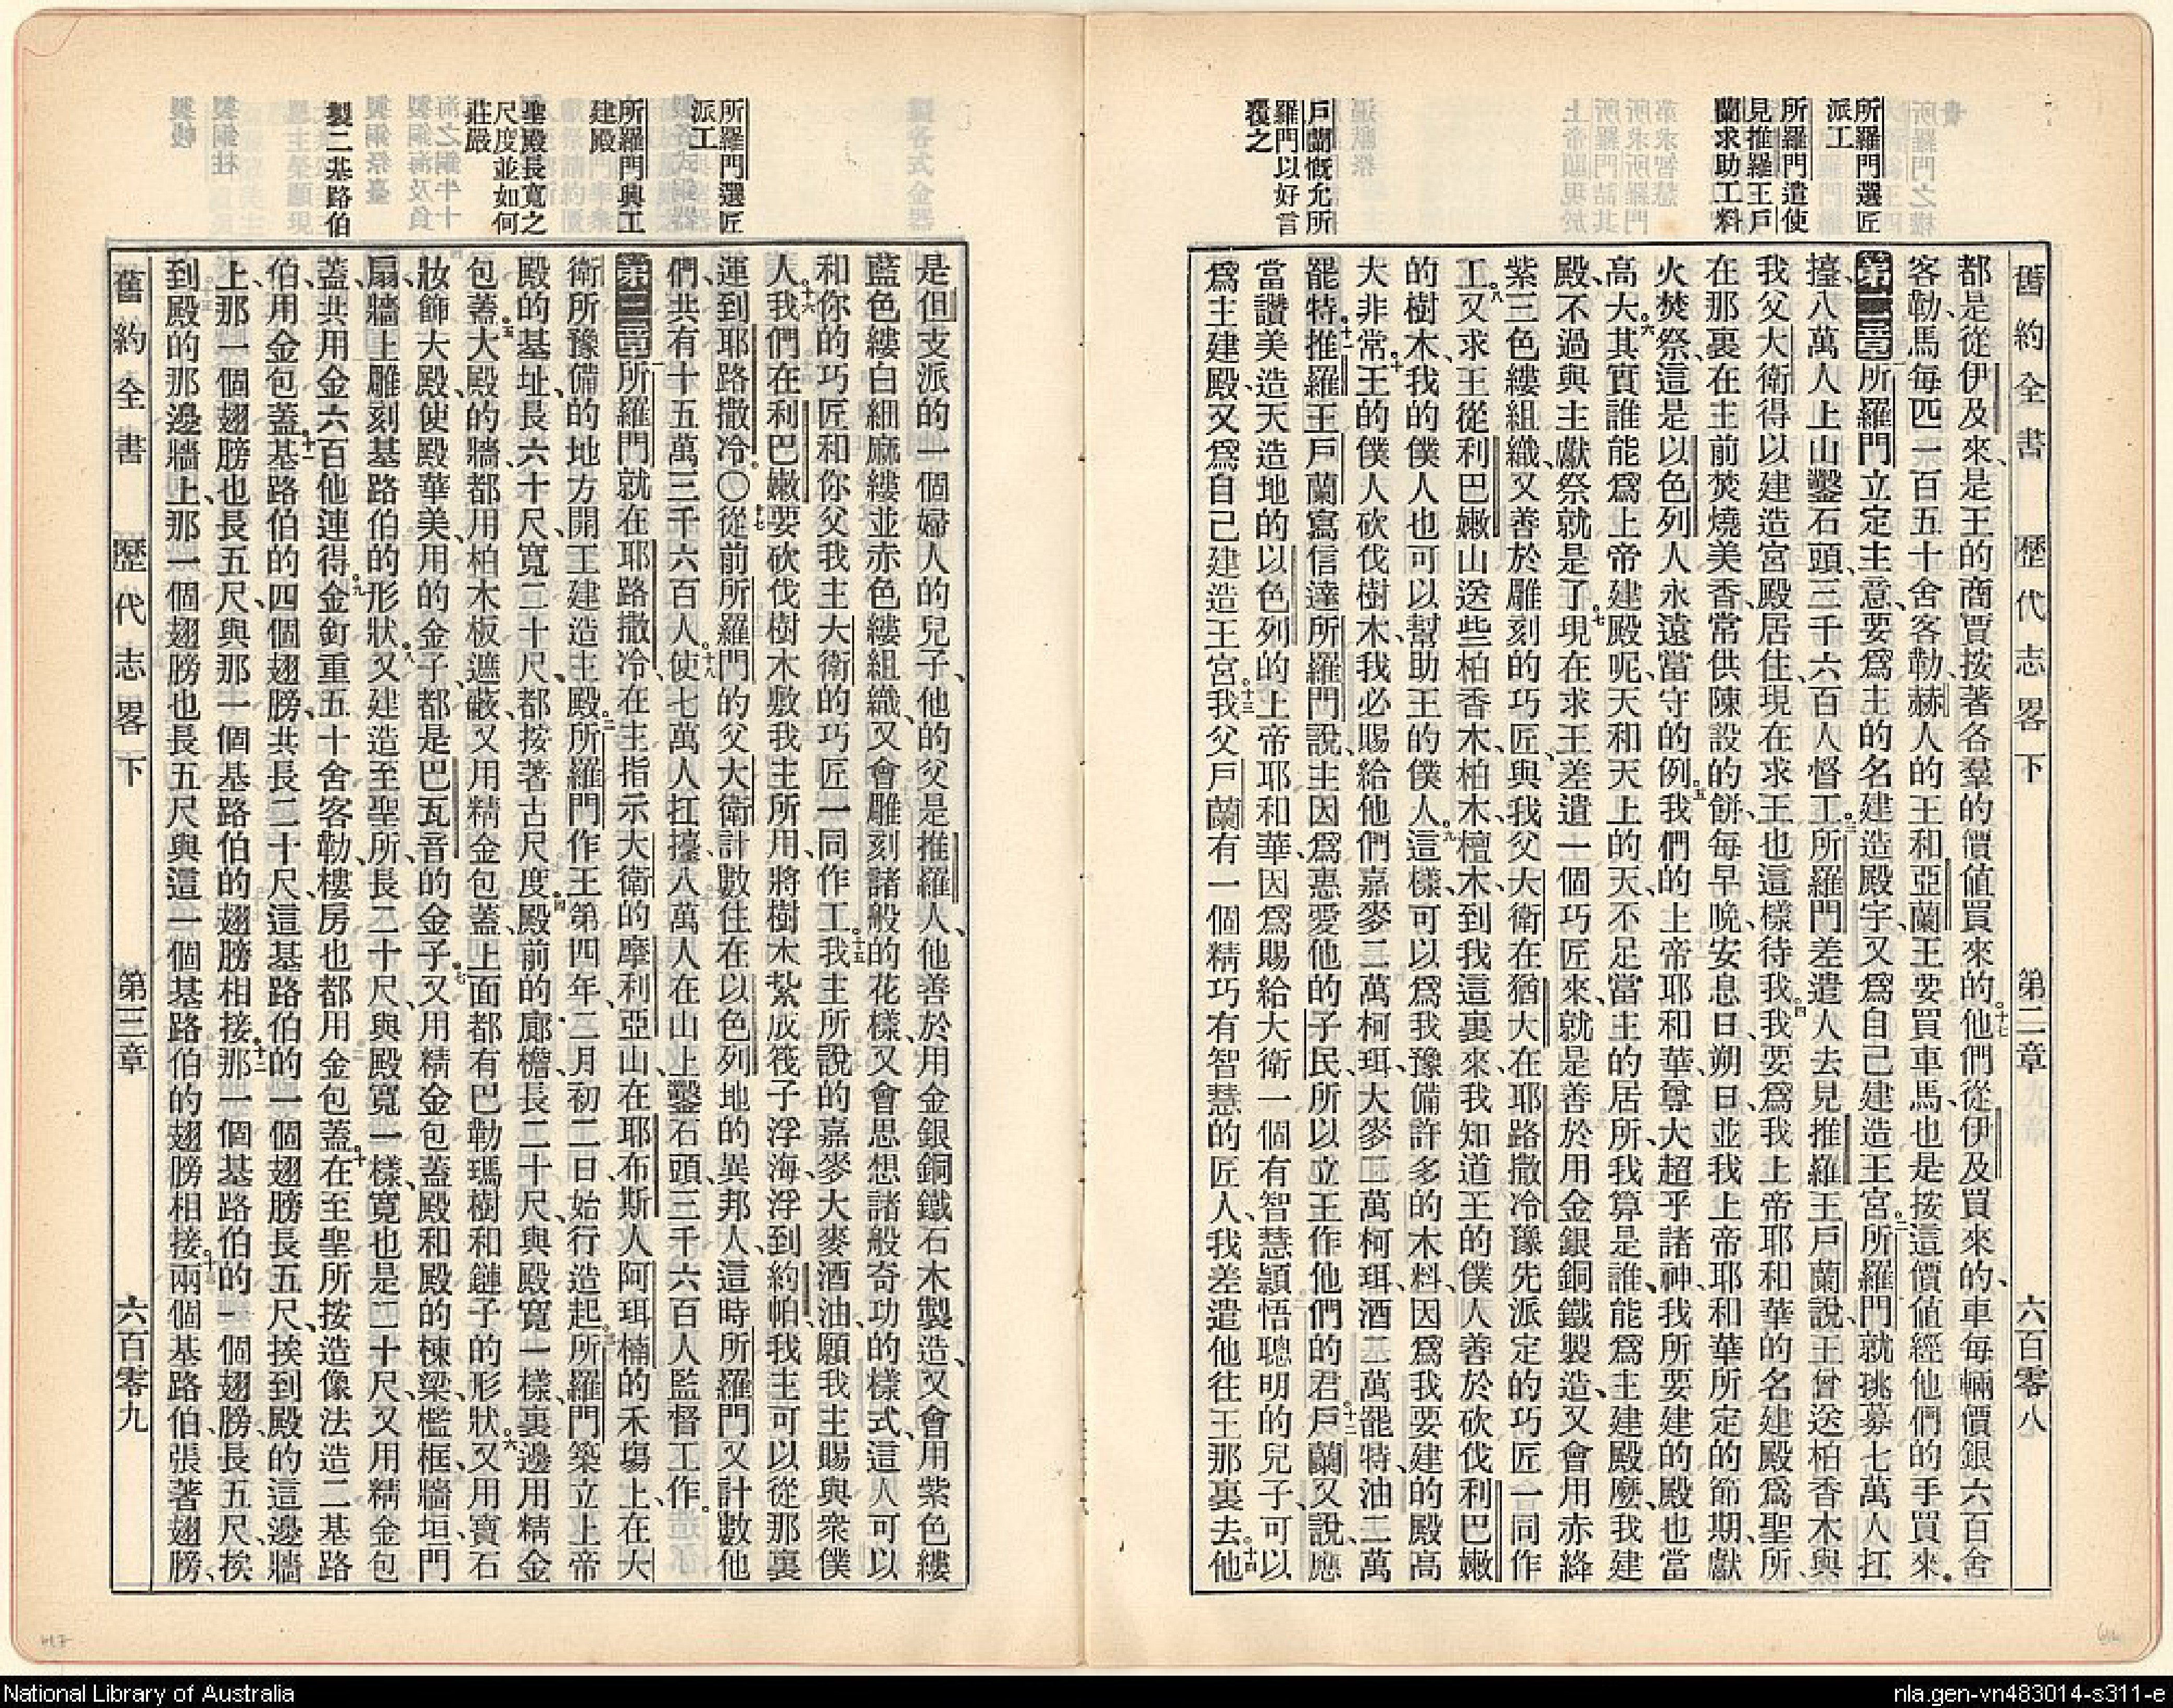 舊約全書 歷代志畧下 第二章 六百零八
所羅門選匠
派工
所羅門遣使
見推羅王戶
蘭求助工料
戶蘭慨允所
羅門以好言
覆之
都是從伊及來、是王的商賈按著各羣的價値買來的、十七他們從伊及買來的車、每輛價銀六百舍
客勒、馬每匹一百五十舍客勒、赫人的王和亞蘭王要買車馬、也是按這價値經他們的手買來。
第二章 一所羅門立定主意、要爲主的名建造殿宇、又爲自己建造王宮。二所羅門就挑募七萬人扛
擡、八萬人上山鑿石頭、三千六百人督工。三所羅門差遣人去見推羅王戶蘭說、王曾送柏香木與
我父大衛、得以建造宮殿居住、現在求王也這樣待我。四我要爲我上帝耶和華的名建殿爲聖所、
在那裏在主前焚燒美香、常供陳設的餅、每早晚、安息日、朔日、並我上帝耶和華所定的節期、獻
火焚祭、這是以色列人永遠當守的例。五我們的上帝耶和華尊大超乎諸神、我所要建的殿也當
高大。六其實誰能爲上帝建殿呢、天和天上的天、不足當主的居所、我算是誰、能爲主建殿麼、我建
殿、不過與主獻祭就是了。七現在求王差遣一個巧匠來、就是善於用金銀銅鐵製造、又會用赤絳
紫三色縷組織、又善於雕刻的巧匠、與我父大衛在猶大在耶路撒冷豫先派定的巧匠一同作
工。八又求王從利巴嫩山送些柏香木、柏木、檀木、到我這裏來、我知道王的僕人善於砍伐利巴嫩
的樹木、我的僕人也可以幫助王的僕人。九這樣、可以爲我豫備許多的木料、因爲我要建的殿高
大非常。十王的僕人砍伐樹木、我必賜給他們嘉麥二萬柯珥、大麥二萬柯珥、酒二萬罷特、油二萬
罷特。十一推羅王戶蘭寫信達所羅門說、主因爲惠愛他的子民、所以立王作他們的君。十二戶蘭又說、應
當讚美造天造地的以色列的上帝耶和華、因爲賜給大衛一個有智慧穎悟聰明的兒子、可以
爲主建殿、又爲自己建造王宮。十三我父戶蘭有一個精巧有智慧的匠人、我差遣他往王那裏去。十四他
所羅門選匠
派工
所羅門興工
建殿
聖殿長寬之
尺度並如何
莊嚴
製二基路伯
是但支派的一個婦人的兒子、他的父是推羅人、他善於用金銀銅鐵石木製造、又會用紫色縷
藍色縷白細麻縷並赤色縷組織、又會雕刻諸般的花樣、又會思想諸般奇功的樣式、這人可以
和你的巧匠和你父我主大衛的巧匠一同作工。十五我主所說的嘉麥大麥酒油、願我主賜與衆僕
人。十六我們在利巴嫩要砍伐樹木、敷我主所用、將樹木紮成筏子浮海、浮到約帕、我主可以從那裏
運到耶路撒冷。〇十七從前所羅門的父大衛計數住在以色列地的異邦人、這時所羅門又計數他
們、共有十五萬三千六百人。十八使七萬人扛擡、八萬人在山上鑿石頭、三千六百人監督工作。
第三章 一所羅門就在耶路撒冷、在主指示大衛的摩利亞山、在耶布斯人阿珥楠的禾塲上、在大
衛所豫備的地方、開工建造主殿。二所羅門作王第四年、二月初二日、始行造起。三所羅門築立上帝
殿的基址、長六十尺、寬二十尺、都按著古尺度。四殿前的廊檐、長二十尺、與殿寬一樣、裏邊用精金
包蓋。五大殿的牆、都用柏木板遮蔽、又用精金包蓋、上面都有巴勒瑪樹和鏈子的形狀。六又用寶石
妝飾大殿、使殿華美、用的金子、都是巴瓦音的金子。七又用精金包蓋殿和殿的棟梁、檻框、牆垣、門
扇、牆上雕刻基路伯的形狀。八又建造至聖所、長二十尺、與殿寬一樣、寬也是二十尺、又用精金包
蓋、共用金六百他連得。九金釘重五十舍客勒、樓房也都用金包蓋。十在至聖所按造像法造二基路
伯、用金包蓋。十一基路伯的四個翅膀、共長二十尺、這基路伯的一個翅膀長五尺、挨到殿的這邊牆
上、那一個翅膀也長五尺、與那一個基路伯的翅膀相接。十二那一個基路伯的一個翅膀、長五尺、挨
到殿的那邊牆上、那一個翅膀也長五尺、與這一個基路伯的翅膀相接。十三兩個基路伯、張著翅膀、
舊約全書 歷代志畧下 第三章 六百零九
National Library of Australia
nla.gen-vn483014-s311-e